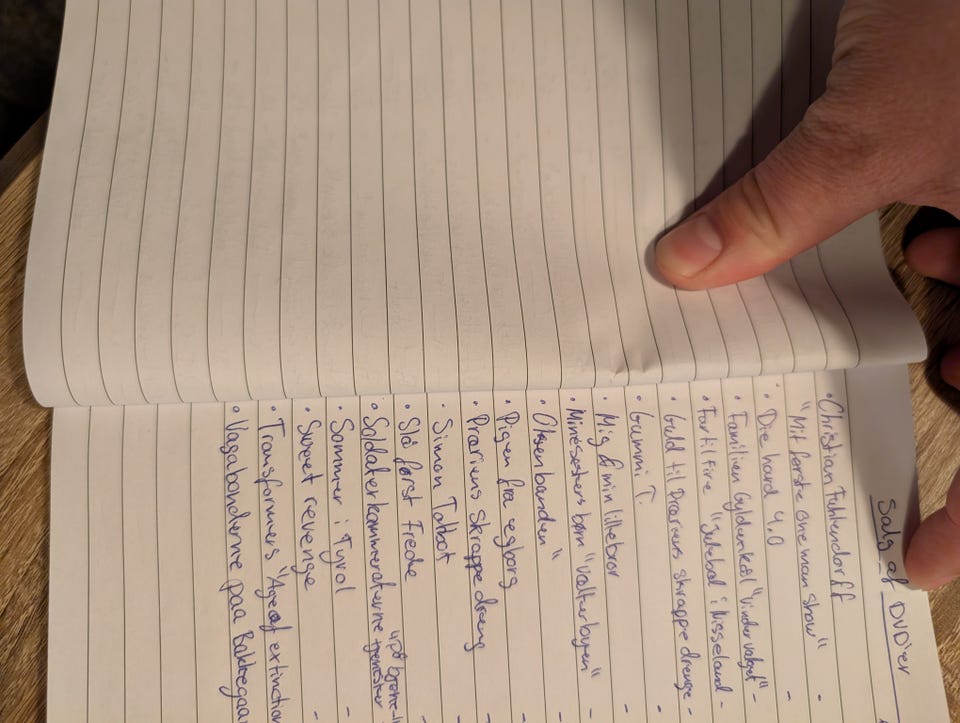 Salg af DVD'er
• Christian Fuhlendorff
"Mit første one man show" -
• Die hard 4.0 -
• Familien Gyldenkål "Vinder valget" -
• Fortil fire "Julebal i Nisseland -
• Guld til Præriens skrappe drenge -
• Gummi T. -
• Mig & min lillebror -
• Minesesters børn "Valterbyen" -
• Olsenbanden " -
• Pigen fra egborg -
• Præriens skrappe dreng -
• Simon Talbot -
• Slå først Frede -
• Soldaterkammeraterne "på bjørne-
• Sommer i Tyrol -
• Sweet revenge -
• Transformers "Age of extinction
• Vagabonderne paa Bakkegaar